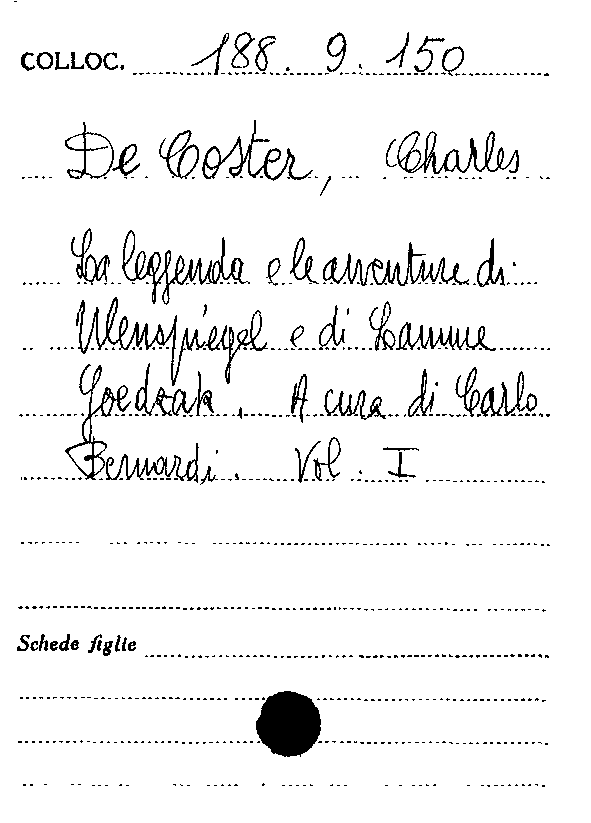 COLLOC. 188. 9. 150
De Coster, Charles
La leggenda e le avventure di
Ulenspiegel e di Lamme
Goedzak. A cura di Carlo
Bernardi. Vol. I
Schede figlie